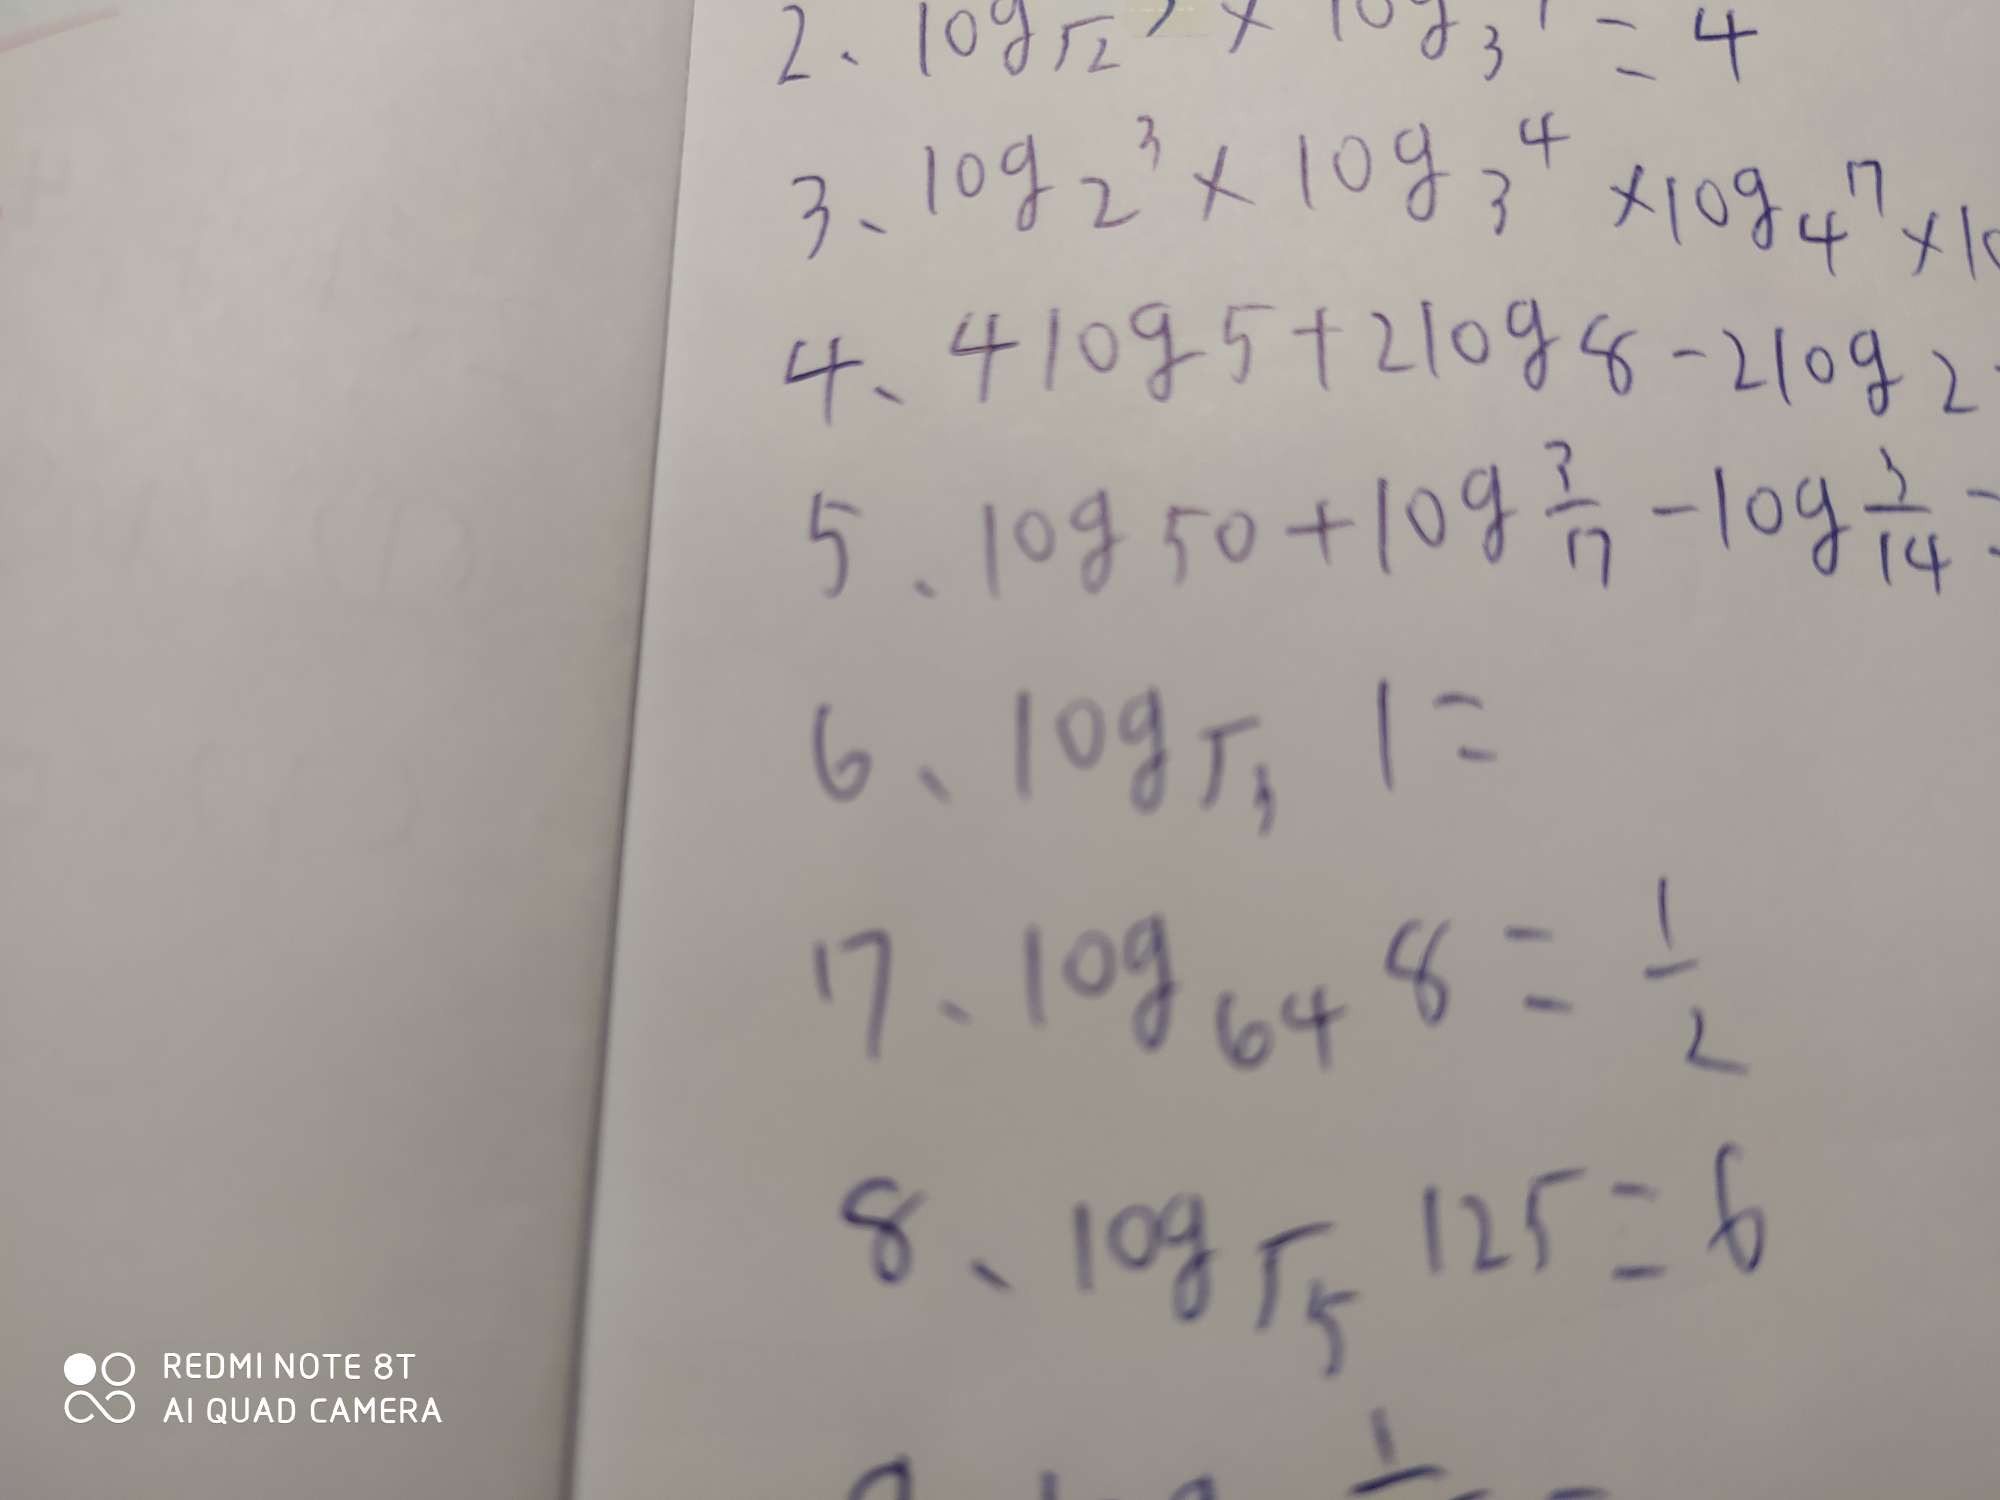 2、log√2 × log3 = 4
3、log2 3 × log3 4 × log4 7 × lo
4、4log5+2log8-2log2
5、log50+log 3/7 -log 3/14 =
6、log√3 1=
7、log64 8 = 1/2
8、log√5 125 = 6
REDMI NOTE 8T
AI QUAD CAMERA